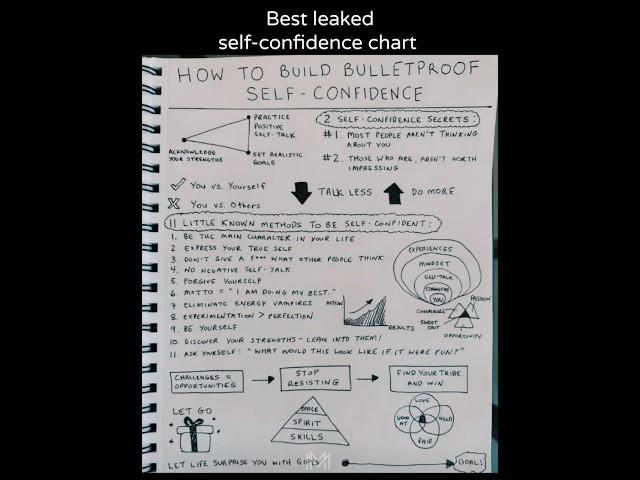 Best leaked
self-confidence chart
HOW TO BUILD BULLETPROOF
SELF-CONFIDENCE
PRACTICE
POSITIVE
SELF-TALK
ACKNOWLEDGE
YOUR STRENGTHS
SET REALISTIC
GOALS
2 SELF-CONFIDENCE SECRETS:
#1. MOST PEOPLE AREN'T THINKING
ABOUT YOU
#2. THOSE WHO ARE, AREN'T WORTH
IMPRESSING
You vs. Yourself
X You vs. Others
TALK LESS
DO MORE
11 LITTLE KNOWN METHODS TO BE SELF-CONFIDENT:
1. BE THE MAIN CHARACTER IN YOUR LIFE
2. EXPRESS YOUR TRUE SELF
3. DON'T GIVE A F*** WHAT OTHER PEOPLE THINK
4. NO NEGATIVE SELF-TALK
5. FORGIVE YOURSELF
6. MOTTO = "I AM DOING MY BEST."
7. ELIMINATE ENERGY VAMPIRES
8. EXPERIMENTATION > PERFECTION
9. BE YOURSELF
10. DISCOVER YOUR STRENGTHS - LEAN INTO THEM!
11. ASK YOURSELF: "WHAT WOULD THIS LOOK LIKE IF IT WERE FUN?"
EXPERIENCES
MINDSET
SELF-TALK
STRENGTHS
YOU
ACTION
RESULTS
PASSION
SWEET
SPOT
OPPORTUNITY
CHALLENGES =
OPPORTUNITIES
STOP
RESISTING
FIND YOUR TRIBE
AND WIN
LET GO
SPACE
SPIRIT
SKILLS
LOVE
GOOD
AT
NEED
PAID
LET LIFE SURPRISE YOU WITH GIFTS
GOAL!